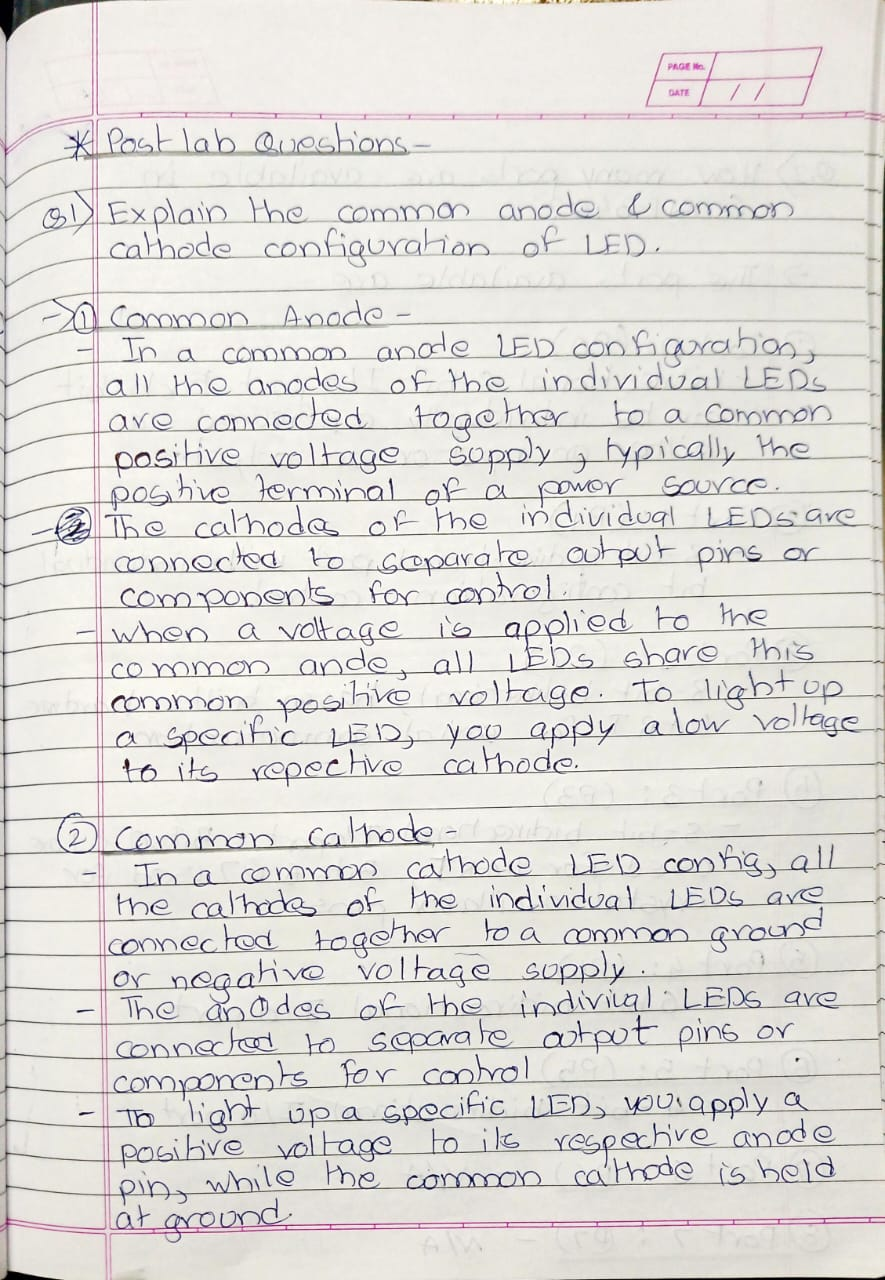 PAGE No.
DATE / /
* Post lab Questions -
Q1) Explain the common anode & common
cathode configuration of LED.
→ ① Common Anode -
- In a common anode LED configuration,
all the anodes of the individual LEDs
are connected together to a common
positive voltage supply, typically the
positive terminal of a power source.
- The cathodes of the individual LEDs are
connected to separate output pins or
components for control.
- When a voltage is applied to the
common ande, all LEDs share this
common positive voltage. To light up
a specific LED, you apply a low voltage
to its repective cathode.
② Common Cathode -
- In a common cathode LED config, all
the cathodes of the individual LEDs are
connected together to a common ground
or negative voltage supply.
- The anodes of the individual LEDs are
connected to separate output pins or
components for control
- To light up a specific LED, you apply a
positive voltage to its respective anode
pin, while the common cathode is held
at ground.